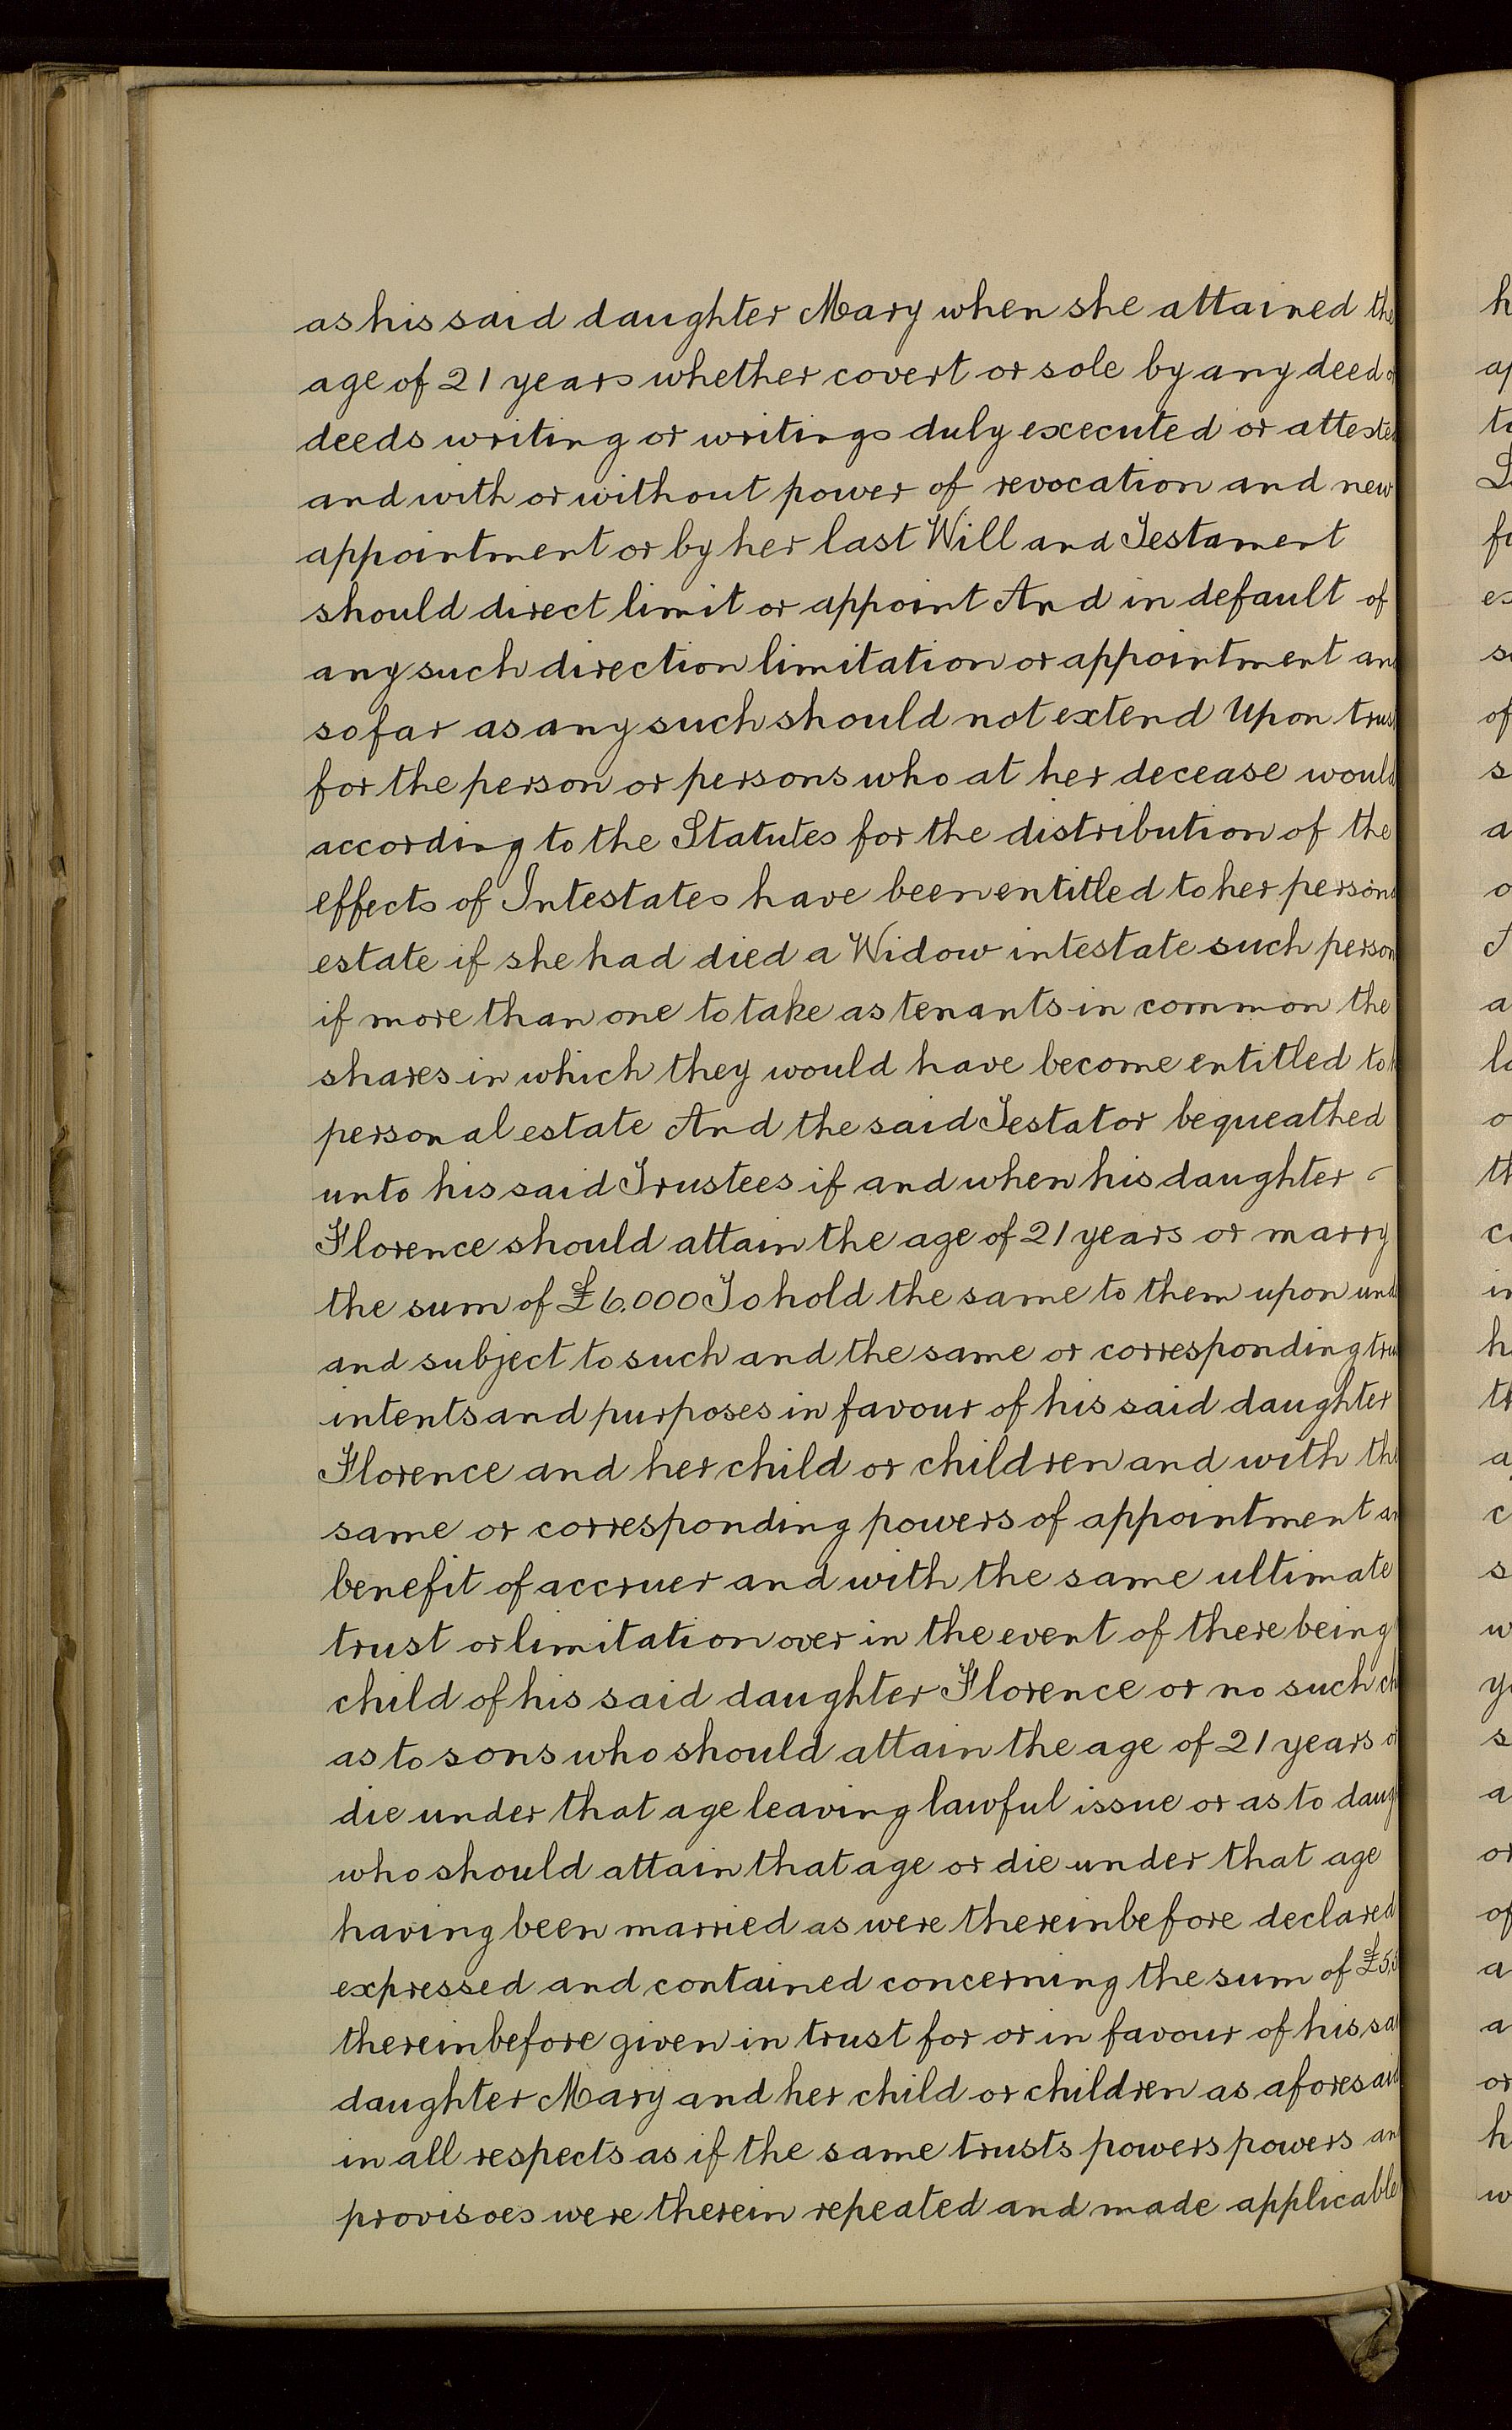 as his said daughter Mary when she attained the
age of 21 years whether covert or sole by any deed or
deeds writing or writings duly executed or attested
and with or without power of revocation and new
appointment or by her last Will and Testament
should direct limit or appoint And in default of
any such direction limitation or appointment and
so far as any such should not extend Upon trust
for the person or persons who at her decease would
according to the Statutes for the distribution of the
effects of Intestates have been entitled to her persona
estate if she had died a Widow intestate such person
if more than one to take as tenants in common the
shares in which they would have become entitled to
personal estate And the said Testator bequeathed
unto his said Trustees if and when his daughter
Florence should attain the age of 21 years or marry
the sum of £6.000 To hold the same to them upon und
and subject to such and the same or corresponding tru
intents and purposes in favour of his said daughter
Florence and her child or children and with the
same or corresponding powers of appointment an
benefit of accruer and with the same ultimate
trust or limitation over in the event of there being
child of his said daughter Florence or no such ch
as to sons who should attain the age of 21 years or
die under that age leaving lawful issue or as to daug
who should attain that age or die under that age
having been married as were thereinbefore declared
expressed and contained concerning the sum of £5,5
thereinbefore given in trust for or in favour of his sai
daughter Mary and her child or children as aforesaid
in all respects as if the same trusts powers powers an
provisoes were therein repeated and made applicable